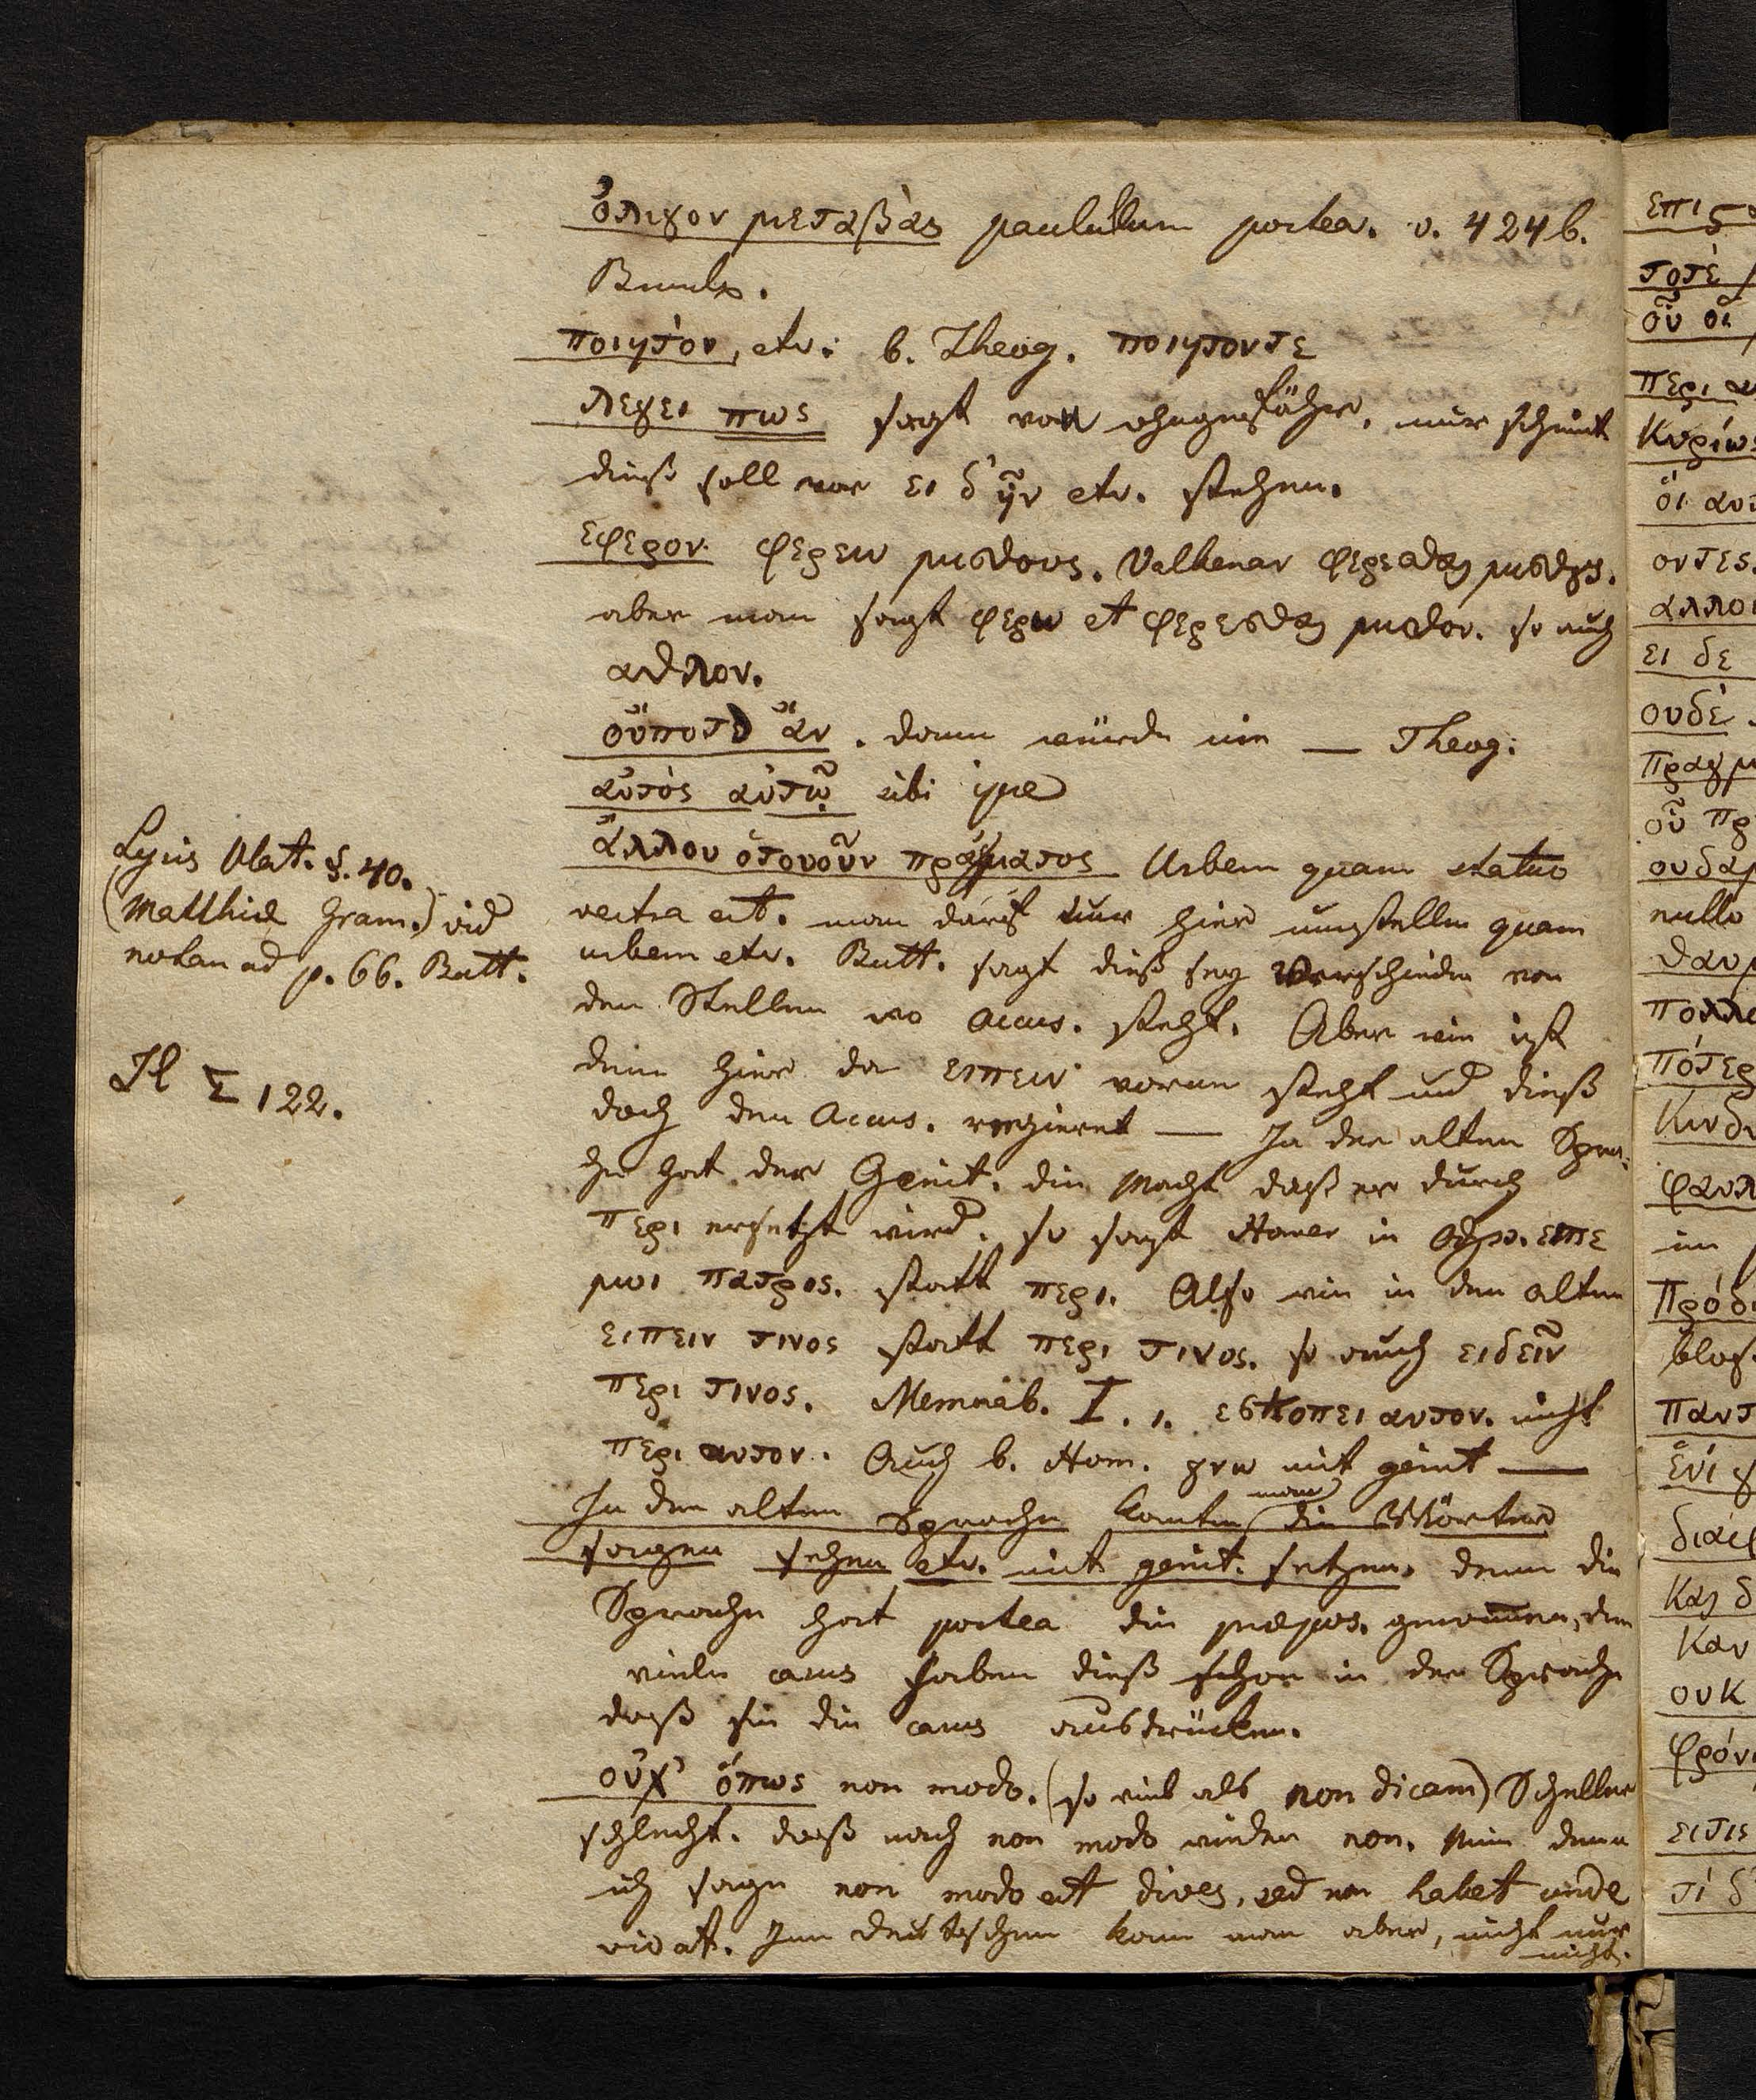 ὀλιγον μεταβὰς paululum postea. v. 424 b.
ποιητὸν, etc: b. Theog. ποιητοντε
λεγει πως sagt von ohngefähr, nur scheint
dieß soll vor ει δ' ἦν etc. stehen.
εφερον. φερειν μισθους. Valkenar φερεσθαι μισθους.
aber man sagt φερω et φερεσθαι μισθον. so auch
αθλον.
οὔποτε ἄν. dann würde nie — Theog:
αὐτὸς αὑτῷ sibi ipse
Lysis Plat. §. 40.
(Matthiä Gram.) vid
notan ad p. 66. Butt.
ἄλλου ὁτουοῦν πράγματος Urbem quam statuo
vestra est. man darf nur hier umstellen quam
urbem etc. Butt. sagt dieß sey verschieden von
den Stellen wo accus. steht. Aber wie ist
Il Σ 122.
denn hier da ειπειν voran steht und dieß
doch den Accus. regieret — In der alten Spra:
che hat der Genit. die Macht daß er durch
περι ersetzt wird. so sagt Homer in Odyss. ειπε
μοι πατρος. statt περι. Also wie in den alten
ειπειν τινος statt περι τινος. so auch ειδεῖν
περι τινος. Memorab. I. 1. εσκοπει αυτον. nicht
περι αυτον. Auch b. Hom. γνω mit genit —
In der alten Sprache konte man die Wörter
sorgen sehen etc. mit genit. setzen. denn die
Sprache hat postea die præpos. genommen, denn
viele casus haben dieß schon in der Sprache
daß sie die casus ausdrücken.
οὐχ' ὅπως non modo. (so viel als non dicam) Scheller
schlecht. daß nach non modo wieder non. Nein denn
ich sage non modo est dives, sed non habet unde
vivat. Im deutschen kann man aber, nicht nur
nicht.